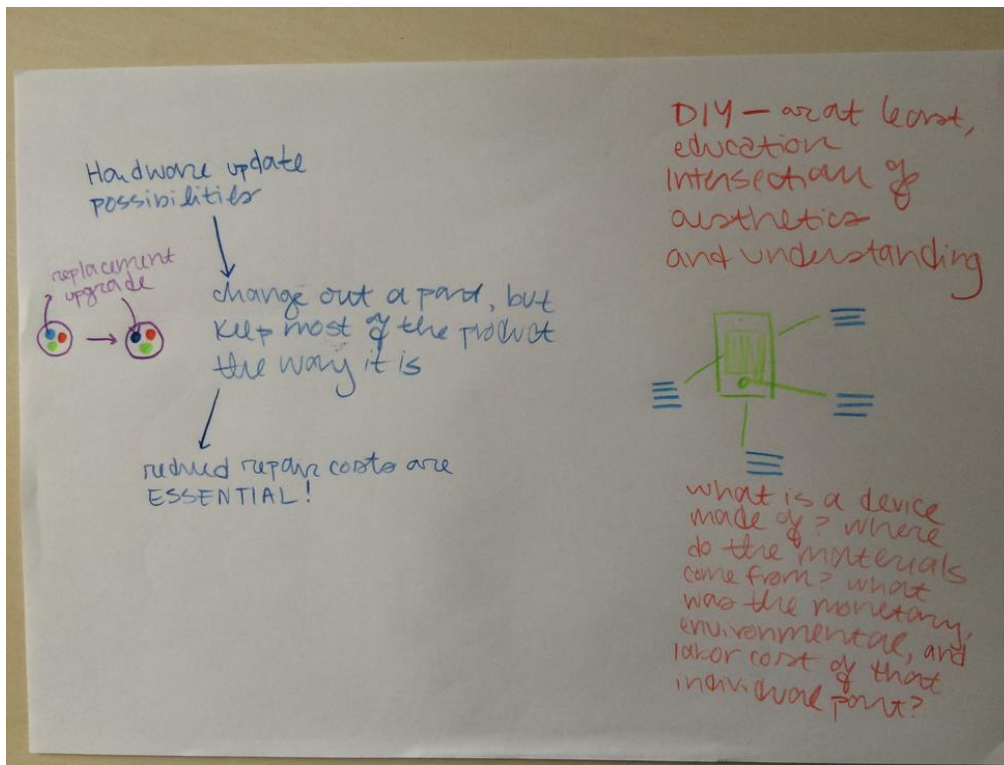 Hardware update
possibilities
replacement
upgrade
change out a part, but
keep most of the product
the way it is
reduced repair costs are
ESSENTIAL!
DIY — or at least,
education
Intersection of
aesthetics
and understanding
what is a device
made of? where
do the materials
come from? what
was the monetary,
environmental, and
labor cost of that
individual part?